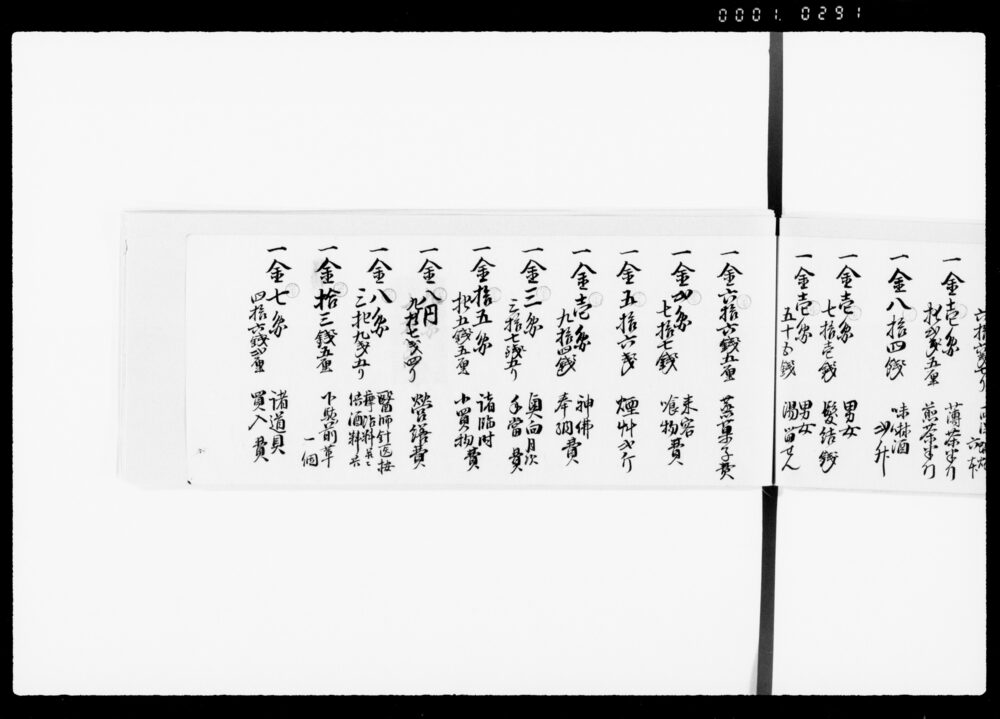 0001. 0291
一金壱円
薄茶半斤
煎茶半斤
一金八拾四銭
味淋酒
一金壱円
七拾壱銭
男女
髪結銭
一金壱円
五十五銭
男女
湯
一金六拾六銭五厘
蒸菓子費
一金弐円
七拾七銭
来客
喰物費
一金五拾六銭
煙艸弐斤
一金壱円
九拾四銭
神佛
奉納費
一金三円
三拾七銭五り
奥向月次
手當費
一金拾五円
拾五銭五厘
諸臨時
小買物費
一金八円
九拾七銭四り
営繕費
一金八円
三拾九銭五り
醫師針医按
一金拾三銭五厘
下駄前革
一個
一金七円
四拾六銭弐厘
諸道具
買入費